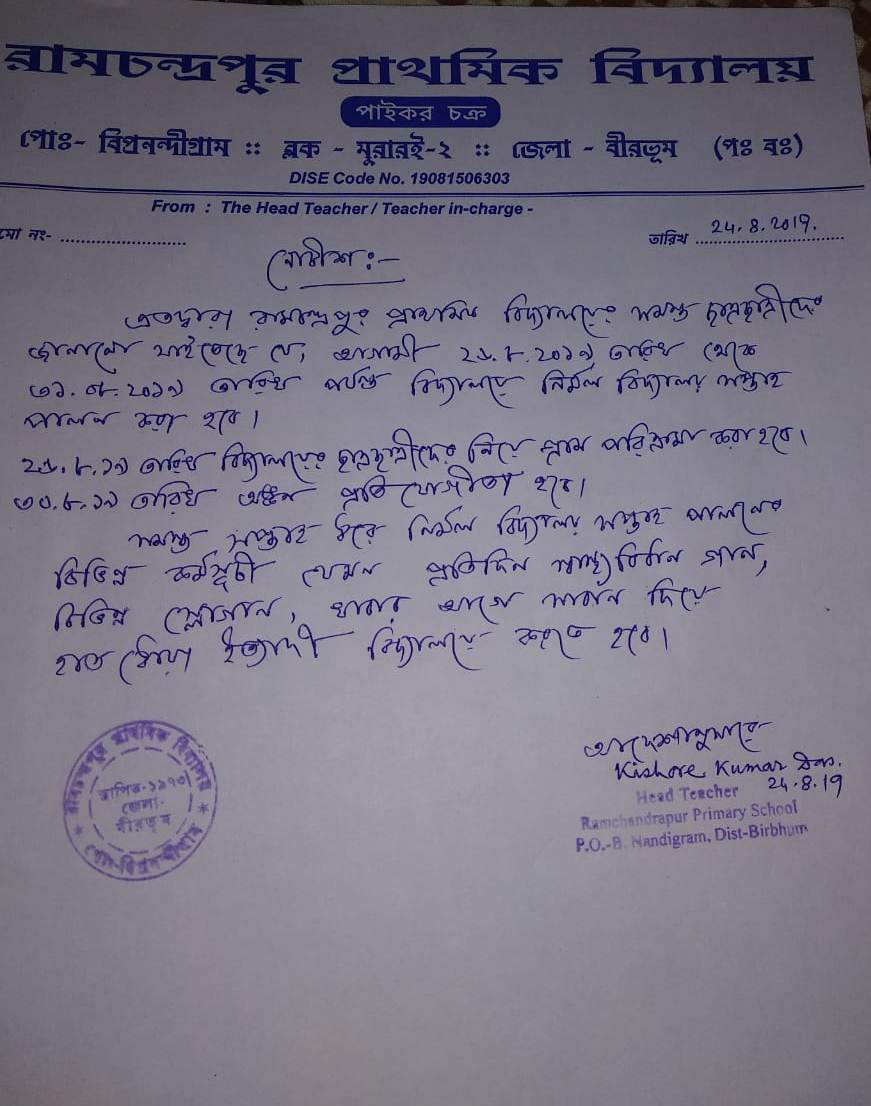 রামচন্দ্রপুর প্রাথমিক বিদ্যালয়
পাইকর চক্র
পোঃ- বিপ্রনন্দীগ্রাম :: ব্লক - মুরারই-২ :: জেলা - বীরভূম (পঃ বঃ)
DISE Code No. 19081506303
From : The Head Teacher / Teacher in-charge -
মো নং- ..............................
তারিখ 24.8.2019.
নোটীশ :-
এতদ্বারা রামচন্দ্রপুর প্রাথমিক বিদ্যালয়ের সমস্ত ছাত্রছাত্রীদের
জানানো যাইতেছে যে, আগামী ২৬.৮.২০১৯ তারিখ থেকে
৩১.০৮.২০১৯ তারিখ পর্যন্ত বিদ্যালয়ে নির্মল বিদ্যালয় সপ্তাহ
পালন করা হবে।
তারিখ বিদ্যালয়ের ছাত্রছাত্রীদের নিয়ে গ্রাম পরিক্রমা করা হবে।
৩০.৮.১৯ তারিখ অঙ্কন প্রতিযোগীতা হবে।
সমস্ত সপ্তাহ ধরে নির্মল বিদ্যালয় সপ্তাহ পালনের
বিভিন্ন কর্মসূচী যেমন প্রতিদিন স্বাস্থ্যবিধান গান,
বিভিন্ন স্লোগান, খাবার আগে সাবান দিয়ে
হাত ধোয়া ইত্যাদী বিদ্যালয়ে করতে হবে।
আদেশানুসারে
Kishore Kumar Das.
24.8.19
Head Teacher
Ramchandrapur Primary School
P.O.-B. Nandigram, Dist-Birbhum
রামচন্দ্রপুর প্রাথমিক বিদ্যালয়
স্থাপিত-১৯৭৩
জেলা-
বীরভূম
পোঃ-বিপ্রনন্দীগ্রাম